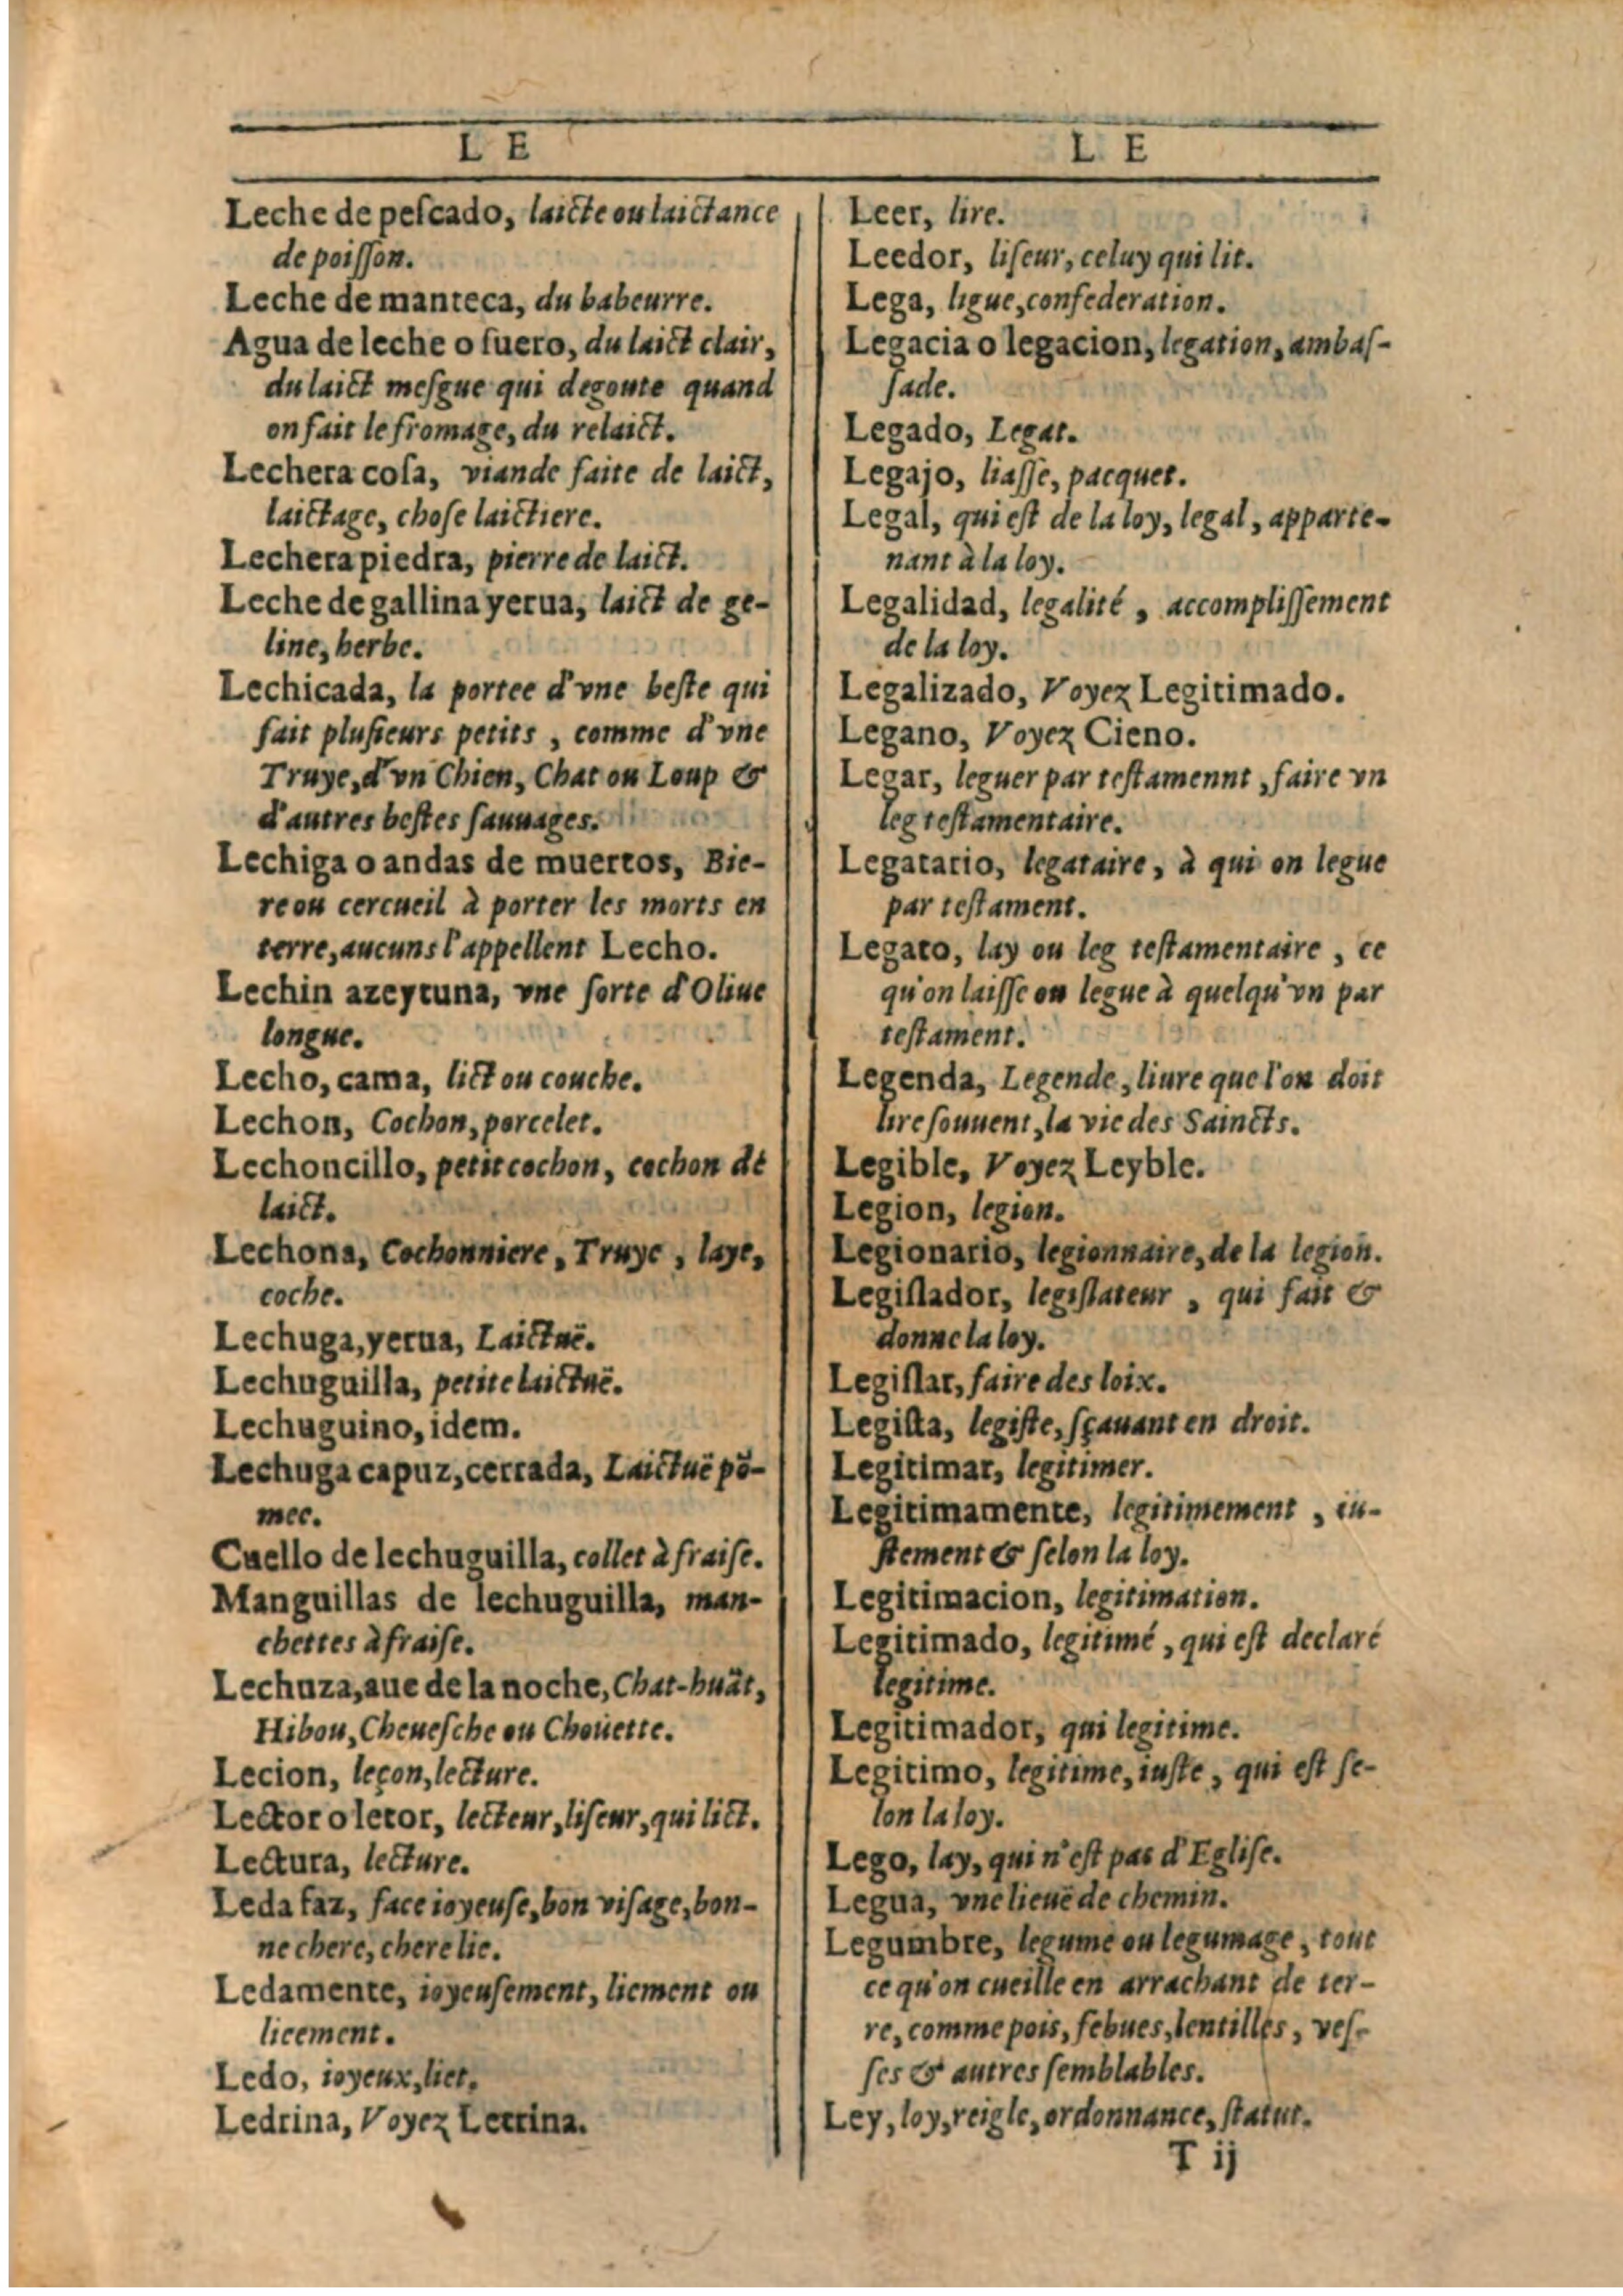 L E
Leche de peſcado, laicte ou laictance
de poiſſon.
Leche de manteca, du babeurre.
Agua de leche o ſuero, du laict clair,
du laict meſgue qui degoute quand
on fait le fromage, du relaict.
Lechera coſa, viande faite de laict,
laictage, choſe laictiere.
Lechera piedra, pierre de laict.
Leche de gallina yerua, laict de ge-
line, herbe.
Lechicada, la portee d'vne beſte qui
fait pluſieurs petits, comme d'vne
Truye, d'vn Chien, Chat ou Loup &
d'autres beſtes ſauuages.
Lechiga o andas de muertos, Bie-
re ou cercueil à porter les morts en
terre, aucuns l'appellent Lecho.
Lechin azeytuna, vne ſorte d'Oliue
longue.
Lecho, cama, lict ou couche.
Lechon, Cochon, porcelet.
Lechoncillo, petit cochon, cochon de
laict.
Lechona, Cochonniere, Truye, laye,
coche.
Lechuga, yerua, Laictuë.
Lechuguilla, petite laictuë.
Lechuguino, idem.
Lechuga capuz, cerrada, Laictuë põ-
mee.
Cuello de lechuguilla, collet à fraiſe.
Manguillas de lechuguilla, man-
chettes à fraiſe.
Lechuza, aue de la noche, Chat-huãt,
Hibou, Cheueſche ou Choüette.
Lecion, leçon, lecture.
Lector o letor, lecteur, liſeur, qui lict.
Lectura, lecture.
Leda faz, face ioyeuſe, bon viſage, bon-
ne chere, chere lie.
Ledamente, ioyeuſement, liement ou
lieement.
Ledo, ioyeux, liet.
Ledrina, Voyez Letrina.
L E
Leer, lire.
Leedor, liſeur, celuy qui lit.
Lega, ligue, confederation.
Legacia o legacion, legation, ambaſ-
ſade.
Legado, Legat.
Legajo, liaſſe, pacquet.
Legal, qui eſt de la loy, legal, apparte-
nant à la loy.
Legalidad, legalité, accompliſſement
de la loy.
Legalizado, Voyez Legitimado.
Legano, Voyez Cieno.
Legar, leguer par teſtamennt, faire vn
leg teſtamentaire.
Legatario, legataire, à qui on legue
par teſtament.
Legato, lay ou leg teſtamentaire, ce
qu'on laiſſe ou legue à quelqu'vn par
teſtament.
Legenda, Legende, liure que l'on doit
lire ſouuent, la vie des Saincts.
Legible, Voyez Leyble.
Legion, legion.
Legionario, legionnaire, de la legion.
Legiſlador, legiſlateur, qui fait &
donne la loy.
Legiſlar, faire des loix.
Legiſta, legiſte, ſçauant en droit.
Legitimar, legitimer.
Legitimamente, legitimement, iu-
ſtement & ſelon la loy.
Legitimacion, legitimation.
Legitimado, legitimé, qui eſt declaré
legitime.
Legitimador, qui legitime.
Legitimo, legitime, iuſte, qui eſt ſe-
lon la loy.
Lego, lay, qui n'eſt pas d'Egliſe.
Legua, vne lieuë de chemin.
Legumbre, legume ou legumage, tout
ce qu'on cueille en arrachant de ter-
re, comme pois, febues, lentilles, veſ-
ſes & autres ſemblables.
Ley, loy, reigle, ordonnance, ſtatut.
T ij